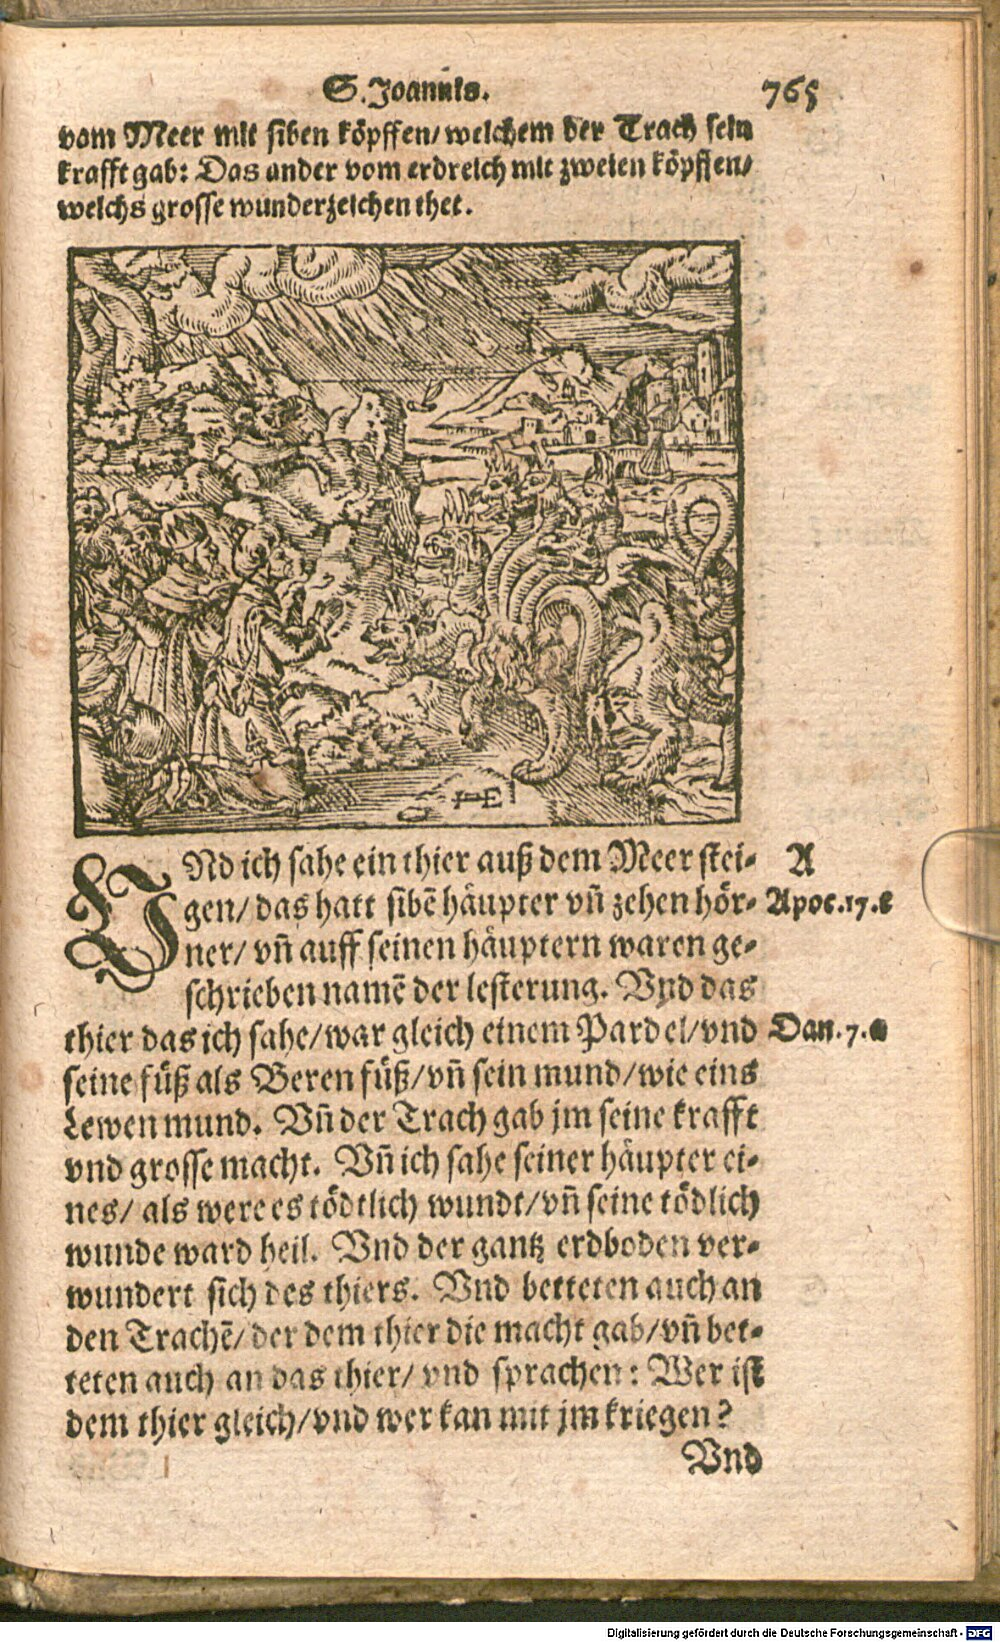 S. Joannis. 765
vom Meer mit siben köpffen/ welchem der Trach sein
krafft gab: Das ander vom erdreich mit zweien köpffen/
welchs grosse wunderzeichen thet.
HE
VNd ich sahe ein thier auß dem Meer stei- A
gen/ das hatt sibẽ häupter vñ zehen hör- Apoc.17.
ner/ vñ auff seinen häuptern waren ge-
schrieben namẽ der lesterung. Vnd das
thier das ich sahe/ war gleich einem Pardel/ vnd Dan.7.a
seine füß als Beren füß/ vñ sein mund/ wie eins
Lewen mund. Vñ der Trach gab jm seine krafft
vnd grosse macht. Vñ ich sahe seiner häupter ei-
nes/ als were es tödtlich wundt/ vñ seine tödlich
wunde ward heil. Vnd der gantz erdboden ver-
wundert sich des thiers. Vnd betteten auch an
den Trachẽ/ der dem thier die macht gab/ vñ bet-
teten auch an das thier/ vnd sprachen: Wer ist
dem thier gleich/ vnd wer kan mit jm kriegen?
Vnd
Digitalisierung gefördert durch die Deutsche Forschungsgemeinschaft - DFG